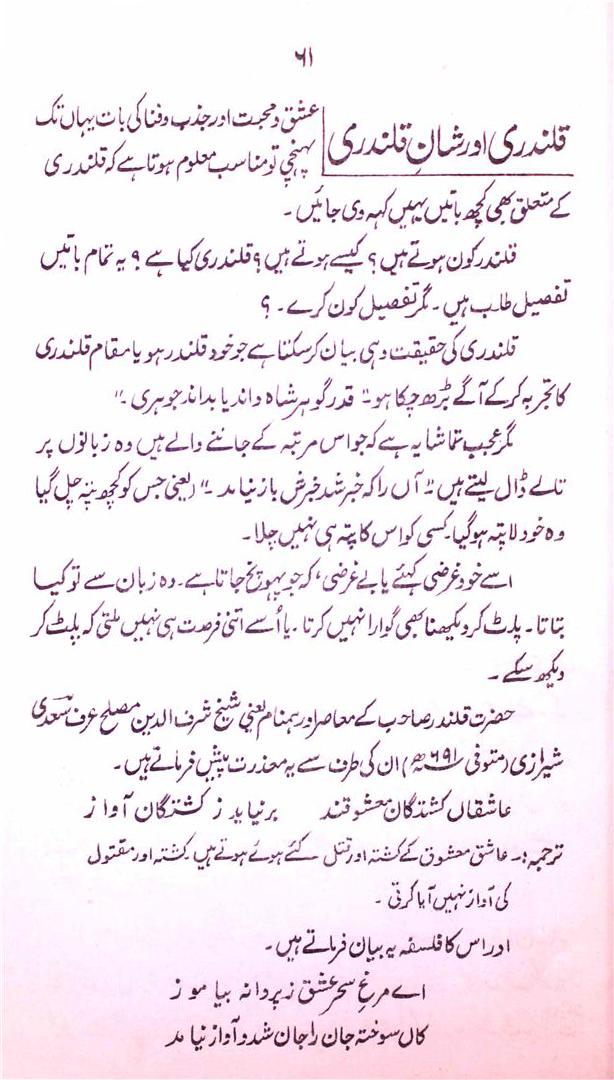 ۶۱
قلندری اور شانِ قلندری
عشق و محبت اور جذب و فنا کی بات یہاں تک
پہنچی تو مناسب معلوم ہوتا ہے کہ قلندری
کے متعلق بھی کچھ باتیں یہیں کہہ دی جائیں۔
قلندر کون ہوتے ہیں؟ کیسے ہوتے ہیں؟ قلندری کیا ہے؟ یہ تمام باتیں
تفصیل طلب ہیں۔ مگر تفصیل کون کرے۔؟
قلندری کی حقیقت وہی بیان کر سکتا ہے جو خود قلندر ہو یا مقام قلندری
کا تجربہ کر کے آگے بڑھ چکا ہو۔" قدر گوہر شاہ داند یا بداند جوہری۔"
مگر عجب تماشا یہ ہے کہ جو اس مرتبہ کے جاننے والے ہیں وہ زبانوں پر
تالے ڈال لیتے ہیں۔" آں را کہ خبر شد خبرش باز نیامد۔" (یعنی جس کو کچھ پتہ چل گیا
وہ خود لاپتہ ہو گیا۔ کسی کو اس کا پتہ ہی نہیں چلا۔
اسے خود غرضی کہئے یا بے غرضی، کہ جو پہونچ جاتا ہے۔ وہ زبان سے تو کیا
بتاتا۔ پلٹ کر دیکھنا بھی گوارا نہیں کرتا۔ یا اُسے اتنی فرصت ہی نہیں ملتی کہ پلٹ کر
دیکھ سکے۔
حضرت قلندر صاحب کے معاصر اور ہمنام یعنی شیخ شرف الدین مصلح عرف سعدی
شیرازی (متوفی ۶۹۱ھ) ان کی طرف سے یہ معذرت پیش فرماتے ہیں۔
عاشقاں کشتگان معشوقند برنیاید ز کشتگان آواز
ترجمہ:۔ عاشق معشوق کے کشتہ اور قتل کئے ہوئے ہوتے ہیں۔ کشتہ اور مقتول
کی آواز نہیں آیا کرتی۔
اور اس کا فلسفہ یہ بیان فرماتے ہیں۔
اے مرغِ سحر عشق ز پروانہ بیاموز
کاں سوختہ جان را جان شد و آواز نیامد